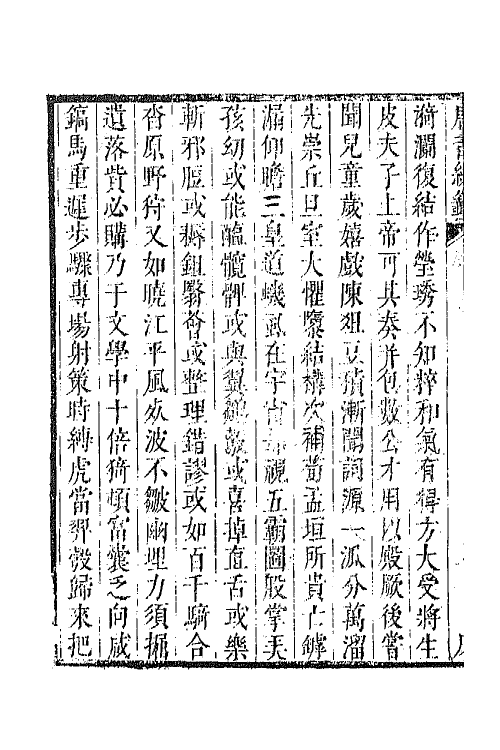 漪瀾復結作瑩琇不知粹和氣有得方大受將生
皮夫子上帝可其奏并包數公才用以殿厥後嘗
聞兒童歲嬉戲陳俎豆積漸開詞源一派分萬溜
先崇丘旦室大懼隳結構次補荀孟垣所貴亡罅
漏仰瞻三皇道蟣虱在宇宙却視五霸圖股掌弄
孩幼或能醢髖髀或與翼雛鷇或喜掉直舌或樂
斬邪脰或耨鉏翳薈或整理錯謬或如百千騎合
沓原野狩又如曉江平風死波不皺幽埋力須掘
遺落貲必購乃于文學中十倍猗頓富囊乏向咸
鎬馬重遲步驟專場射策時縛虎當羿彀歸來把